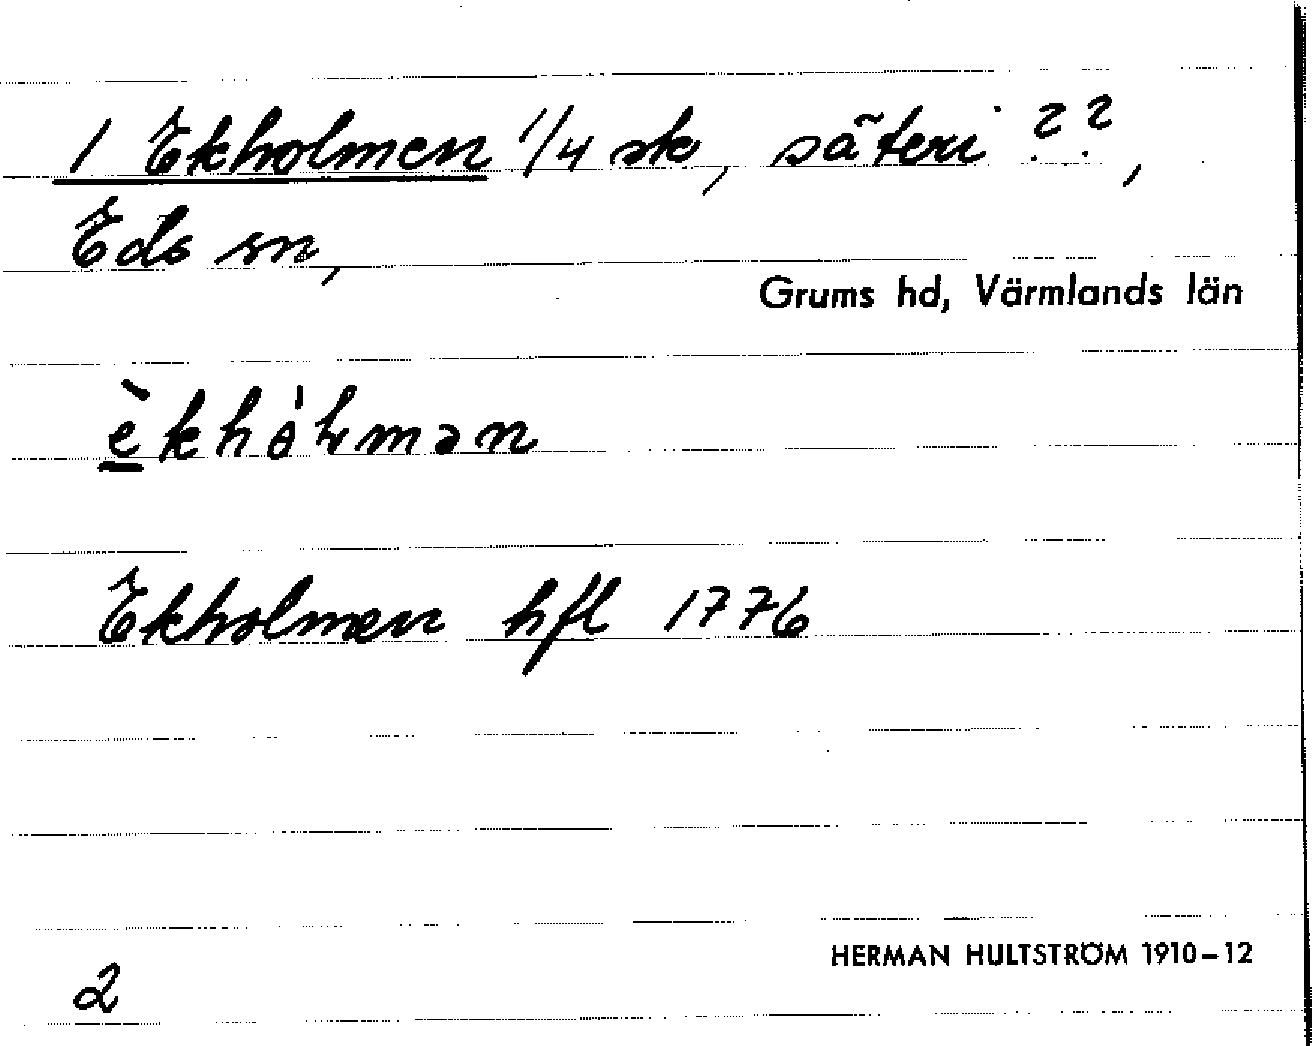 1 Ekholmen 1/4 sk, säteri ??,
Eds sn,
Grums hd, Värmlands län
Ekholmen hfl 1776
HERMAN HULTSTRÖM 1910–12
2